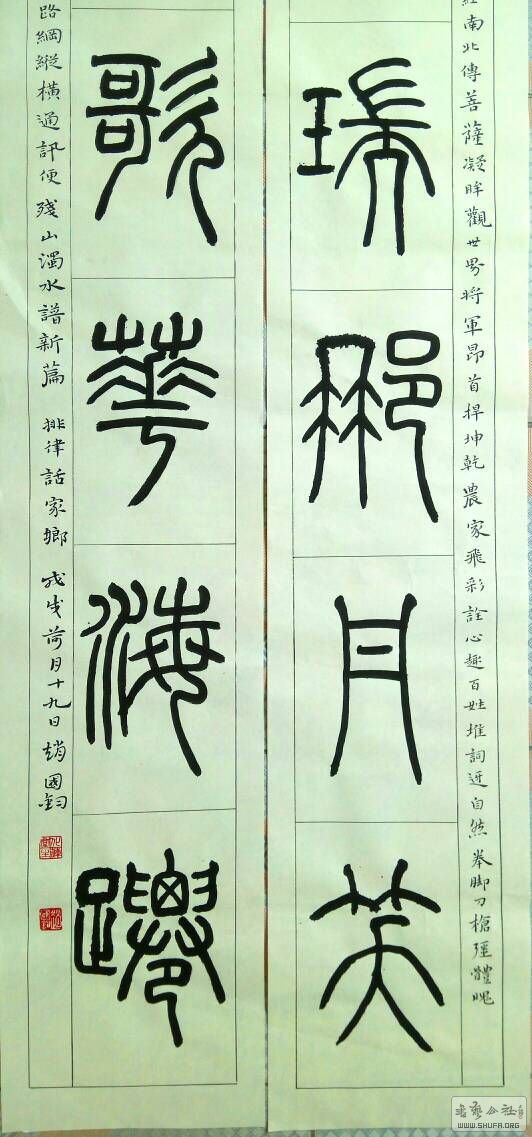 南北傳菩薩凝眸觀世界將軍昂首捍坤乾農家飛彩詮心趣百姓堆詞近自然拳腳刀槍強體魄
笑
歌華海
路網縱橫通訊便殘山濁水譜新篇 排律話家鄉 戊戌荷月十九日趙國鈞
WWW.SHUFA.ORG